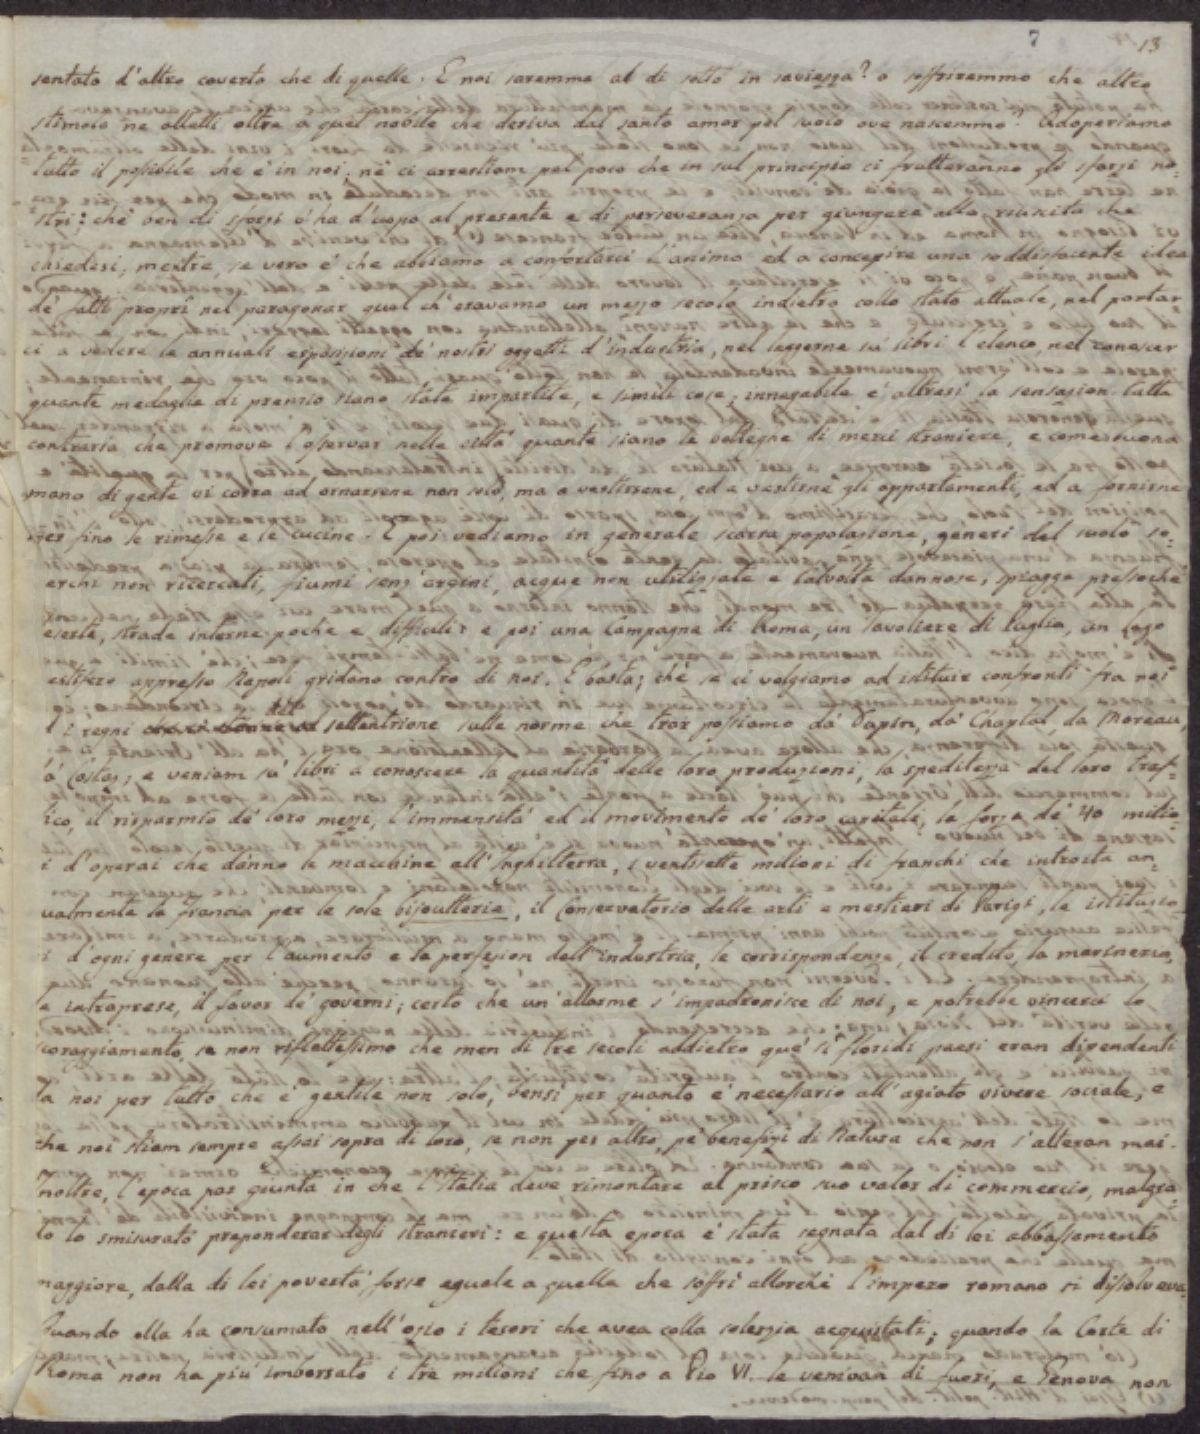 7 13
sentato d'altro coverto che di quelle. E noi saremmo al di sotto in saviezza? o soffriremmo che altro
stimolo nè alletti oltre a quel nobile che deriva dal santo amor pel suolo ove nascemmo? Adoperiamo
tutto il possibile che è in noi; nè ci arrestiam pel poco che in sul principio ci frutteranno gli sforzi no-
stri: chè ben di sforzi v'ha d'uopo al presente e di perseveranza per giungere alla riuscita che
chiedesi, mentre, se vero è che abbiamo a confortarci l'animo ed a concepire una soddisfacente idea
de' fatti proprî nel paragonar quel ch'eravamo un mezzo secolo indietro collo stato attuale, nel portar
ci a vedere le annuali esposizioni de' nostri oggetti d'industria, nel leggerne su' libri l'elenco, nel conoscer
quante medaglie di premio siano state impartite, e simili cose; innegabile è altresì la sensazion tutta
contraria che promove l'osservar nelle città quante siano le botteghe di merci straniere, e come suona
mano di gente vi corra ad ornarsene non solo, ma a vestirsene, ed a vestirne gli appartamenti, ed a fornirne
per fino le rimesse e le cucine. E poi vediamo in generale scarsa popolazione, generi del suolo so-
erchi non ricercati, fiumi senz argini, acque non utilizzate e talvolta dannose, spiagge pressochè
eserte, strade interne poche e difficili: e poi una Campagna di Roma, un Tavoliere di Puglia, un Lago
estifero appresso Napoli gridano contro di noi. E basta; chè se ci volgiamo ad istituir confronti fra noi
i regni del settentrione sulle norme che trar possiamo da' Dapin, da' Chaptal, da Moreau,
a' Costaz; e veniam su' libri a conoscere la quantità delle loro produzioni, la speditezza del loro traf-
fico, il risparmio de' loro mezzi, l'immensità ed il movimento de' loro capitali, la forza de' 40 milio-
i d'operai che danno le macchine all'Inghilterra, i ventisette milioni di franchi che introita an-
ualmente la Francia per le sole bijoutterie, il Conservatorio delle arti e mestieri di Parigi, le istituzio-
i d'ogni genere per l'aumento e la perfezion dell'industria, le corrispondenze, il credito, la marineria,
e intraprese, il favor de' governi; certo che un'allarme s'impadronisce di noi, e potrebbe vincerci lo
scoraggiamento, se non riflettessimo che men di tre secoli addietro que' sì floridi paesi eran dipendenti
da noi per tutto che è gentile non solo, bensì per quanto è necessario all'agiato vivere sociale, e
che noi stiam sempre assai sopra di loro, se non per altro, pe' benefizj di Natura che non s'alteran mai.
noltre, l'epoca par giunta in che l'Italia deve rimontare al prisco suo valor di commercio, malgra-
do lo smisurato preponderar degli stranieri: e questa epoca è stata segnata dal di lei abbassamento
maggiore, dalla di lei povertà forse eguale a quella che soffrì allorchè l'impero romano si dissolveva.
Quando ella ha consumato nell'ozio i tesori che avea colla solerzia acquistati; quando la Corte di
Roma non ha più imborsato i tre milioni che fino a Pio VI. le venivan di fuori, e Genova non